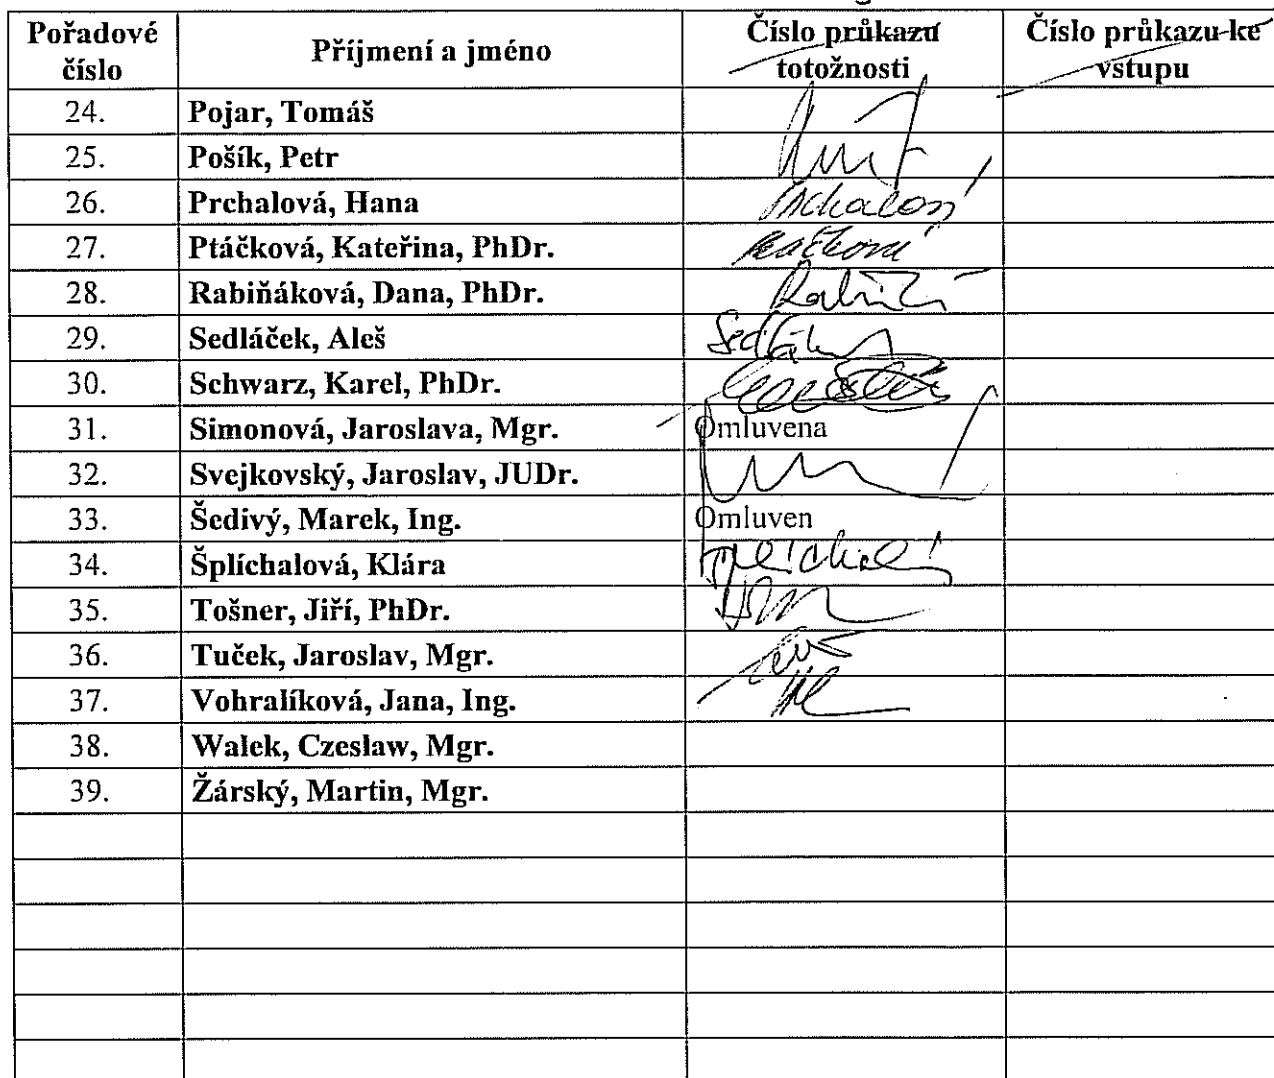 Pořadové číslo Příjmení a jméno Číslo průkazu totožnosti Číslo průkazu ke vstupu
24. Pojar, Tomáš
25. Pošík, Petr
26. Prchalová, Hana
27. Ptáčková, Kateřina, PhDr.
28. Rabiňáková, Dana, PhDr.
29. Sedláček, Aleš
30. Schwarz, Karel, PhDr.
31. Simonová, Jaroslava, Mgr. Omluvena
32. Svejkovský, Jaroslav, JUDr.
33. Šedivý, Marek, Ing. Omluven
34. Šplíchalová, Klára
35. Tošner, Jiří, PhDr.
36. Tuček, Jaroslav, Mgr.
37. Vohralíková, Jana, Ing.
38. Walek, Czeslaw, Mgr.
39. Žárský, Martin, Mgr.